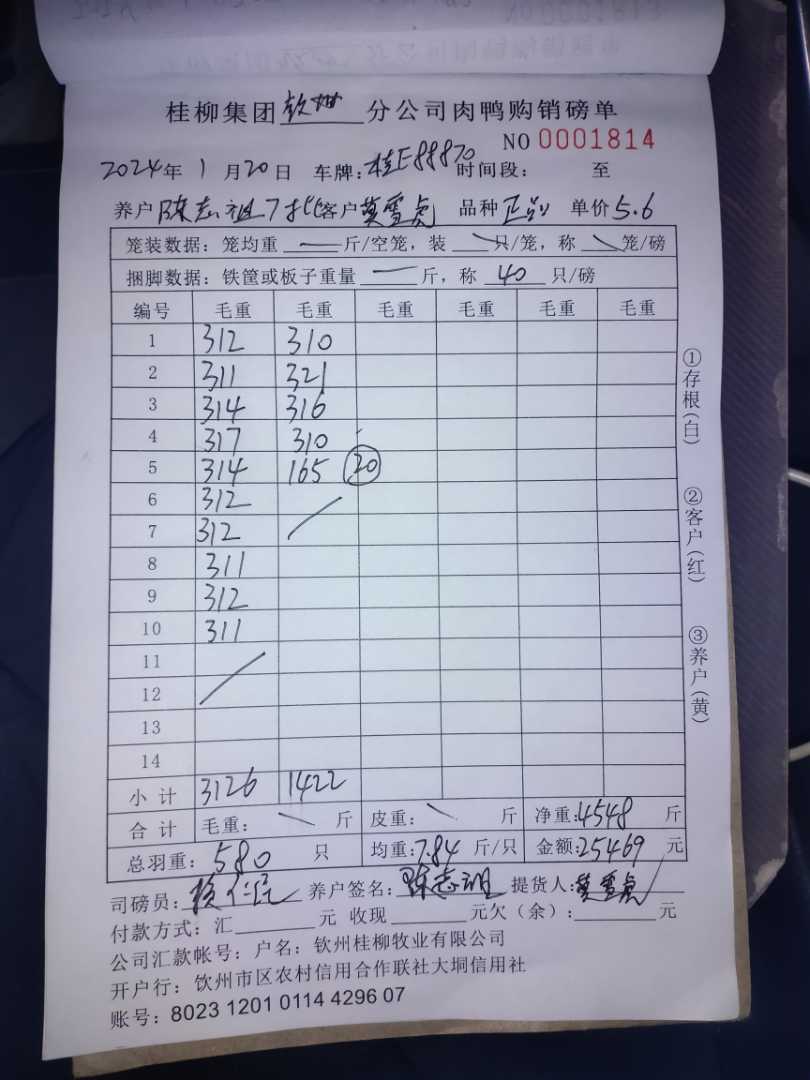 桂柳集团 钦州 分公司肉鸭购销磅单
NO 0001814
2024年 1月20日 车牌:桂E88870 时间段: 至
养户 陈志祖7批 客户 莫雪虎 品种 正品 单价 5.6
笼装数据: 笼均重 — 斤/空笼, 装 \ 只/笼, 称 \ 笼/磅
捆脚数据: 铁筐或板子重量 — 斤, 称 40 只/磅
编号 毛重 毛重 毛重 毛重 毛重 毛重
1 312 310
2 311 321
3 314 316
4 317 310
5 314 165 20
6 312
7 312
8 311
9 312
10 311
11
12
13
14
小 计 3126 1422
合 计 毛重: \ 斤 皮重: \ 斤 净重:4548 斤
总羽重: 580 只 均重:7.84 斤/只 金额:25469 元
司磅员: 养户签名: 陈志祖 提货人: 莫雪虎
付款方式: 汇 元 收现 元欠(余): 元
公司汇款帐号: 户名: 钦州桂柳牧业有限公司
开户行: 钦州市区农村信用合作联社大垌信用社
账号: 8023 1201 0114 4296 07
①存根(白)
②客户(红)
③养户(黄)